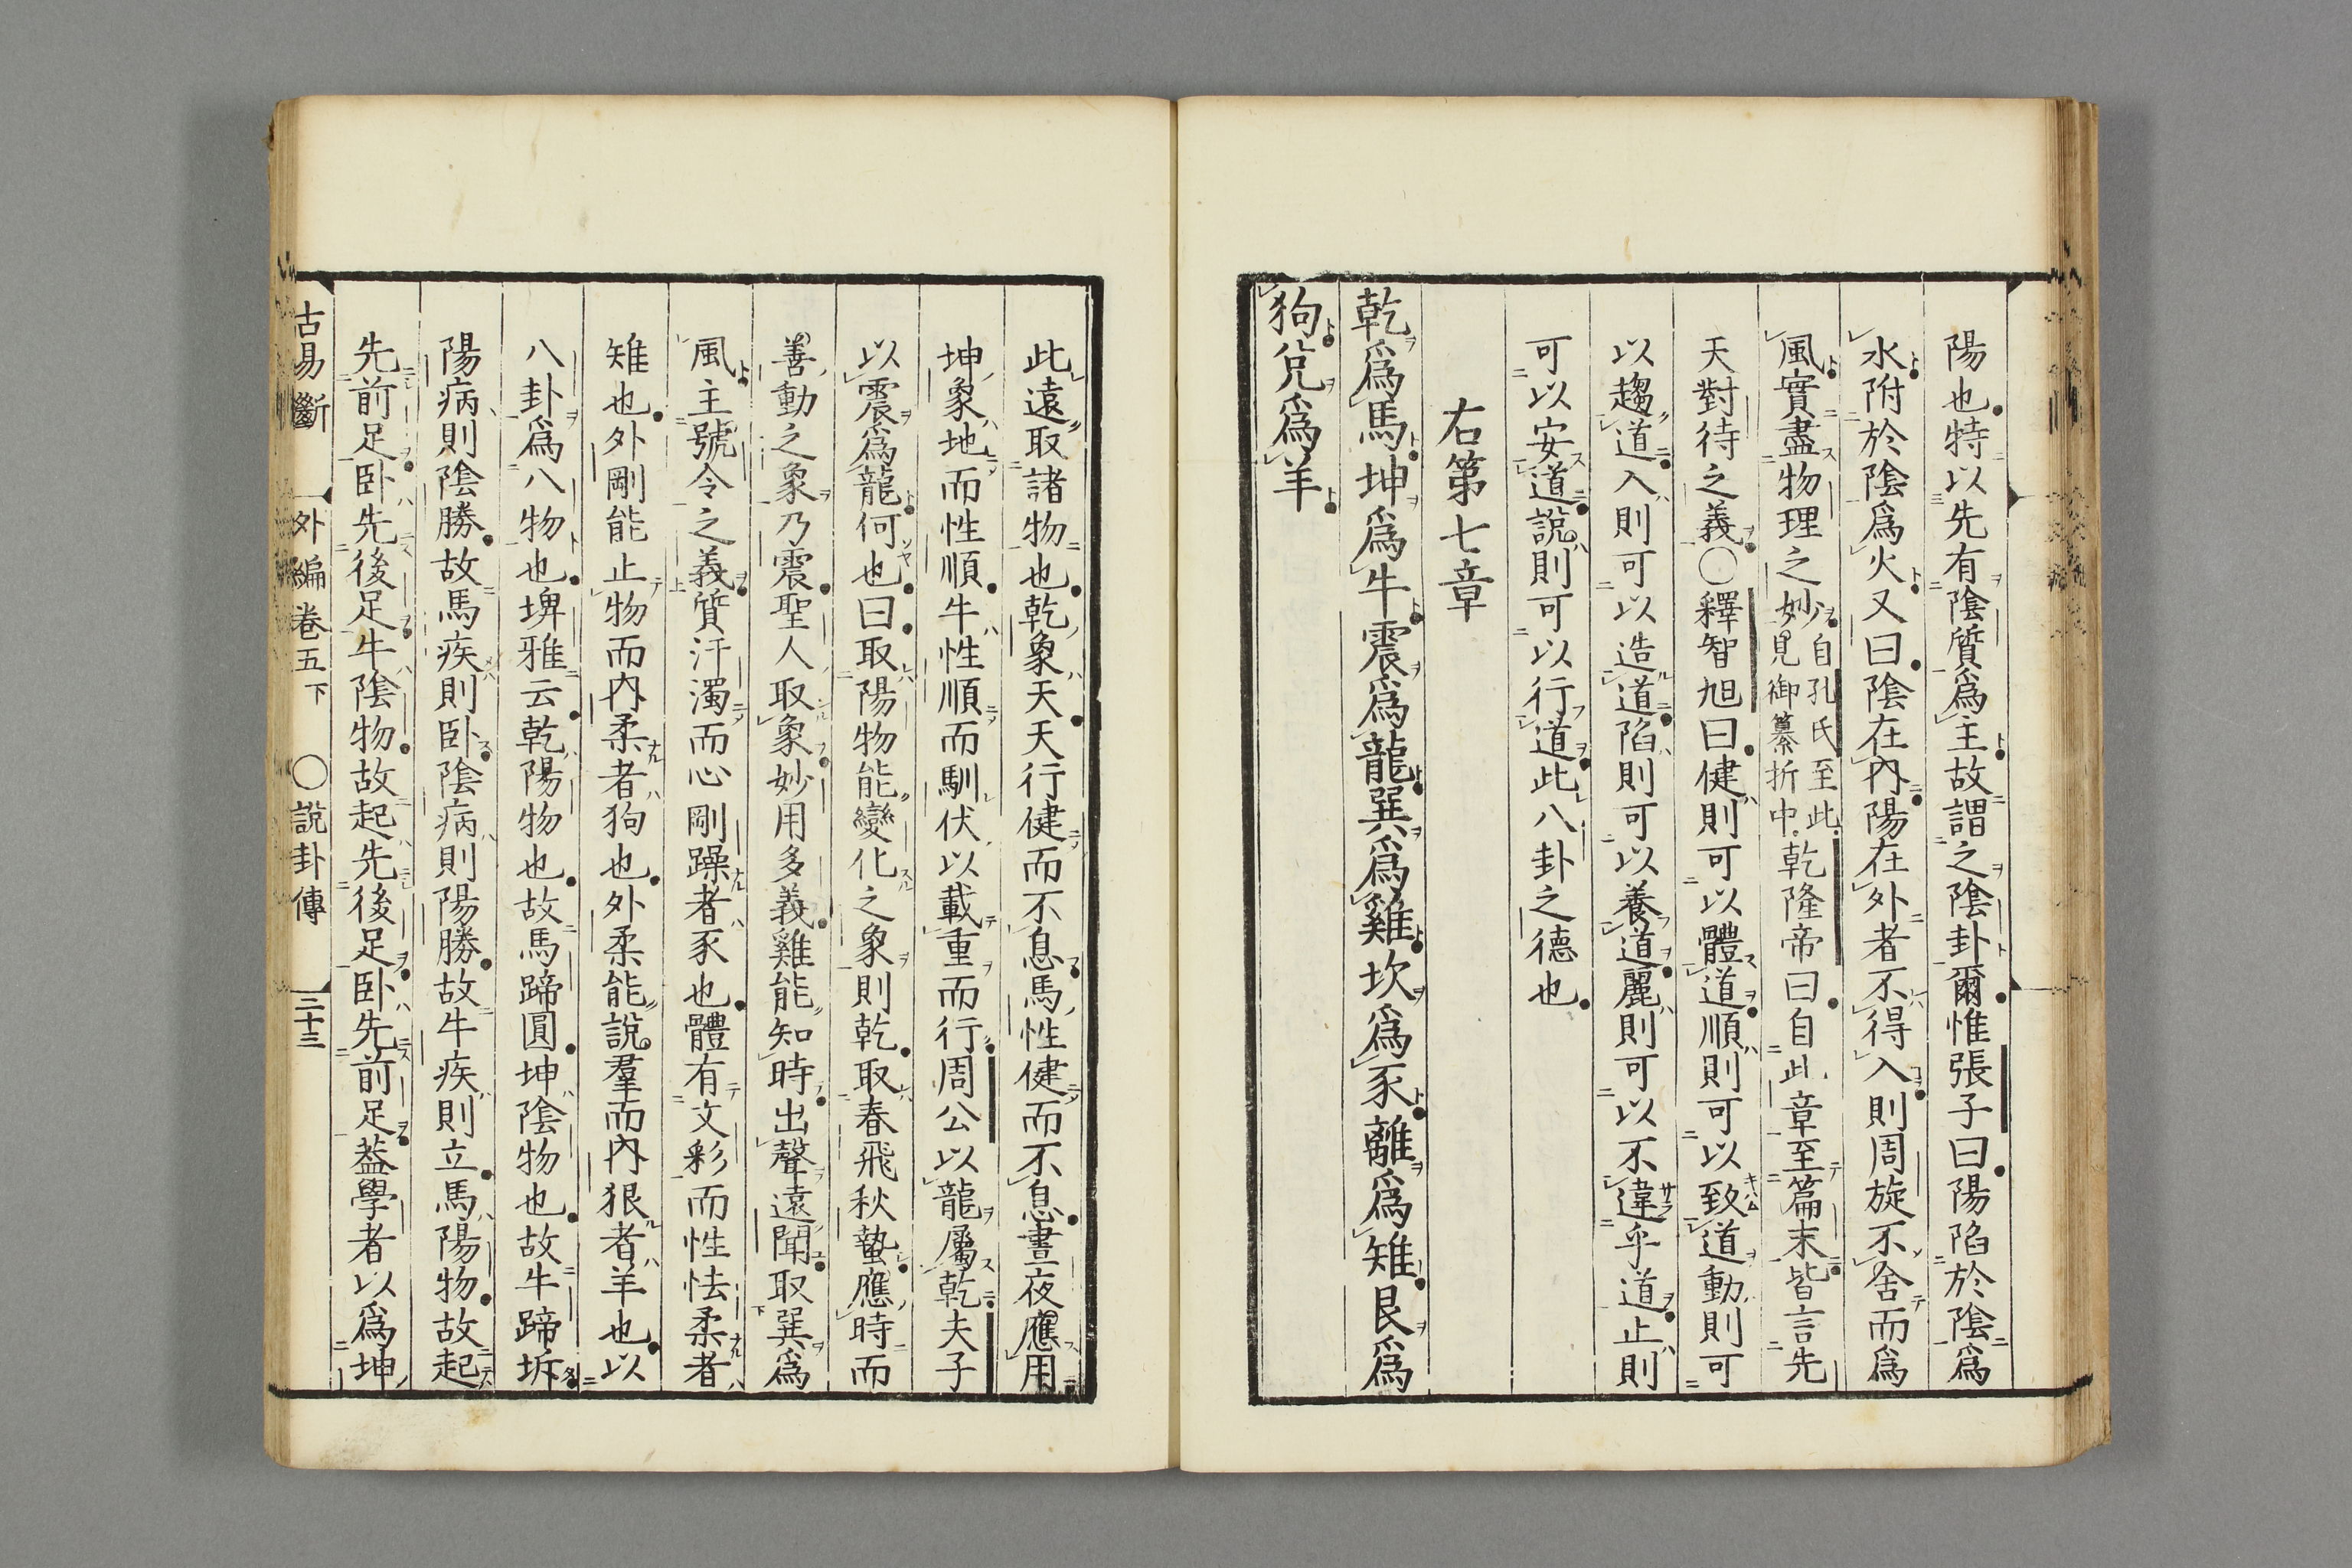 陽也特以先有陰質爲主故謂之陰卦爾惟張子曰陽陷於陰爲
水附於陰爲火又曰陰在內陽在外者不得入則周旋不舍而爲
風實盡物理之妙自孔氏至此見御纂折中乾隆帝曰自此章至篇末皆言先
天對待之義○釋智旭曰健則可以體道順則可以致道動則可
以趨道入則可以造道陷則可以養道麗則可以不違乎道止則
可以安道說則可以行道此八卦之德也
右第七章
乾爲馬坤爲牛震爲龍巽爲雞坎爲豕離爲雉艮爲
狗兌爲羊
此遠取諸物也乾象天天行健而不息馬性健而不息晝夜應用
坤象地而性順牛性順而馴伏以載重而行周公以龍屬乾夫子
以震爲龍何也曰取陽物能變化之象則乾取春飛秋蟄應時而
善動之象乃震聖人取象妙用多義雞能知時出聲遠聞取巽爲
風主號令之義質汗濁而心剛躁者豕也體有文彩而性怯柔者
雉也外剛能止物而內柔者狗也外柔能說羣而內狠者羊也以
八卦爲八物也埤雅云乾陽物也故馬蹄圓坤陰物也故牛蹄坼
陽病則陰勝故馬疾則卧陰病則陽勝故牛疾則立馬陽物故起
先前足卧先後足牛陰物故起先後足卧先前足葢學者以爲坤
古易斷 外編卷五下 ○說卦傳 三十三